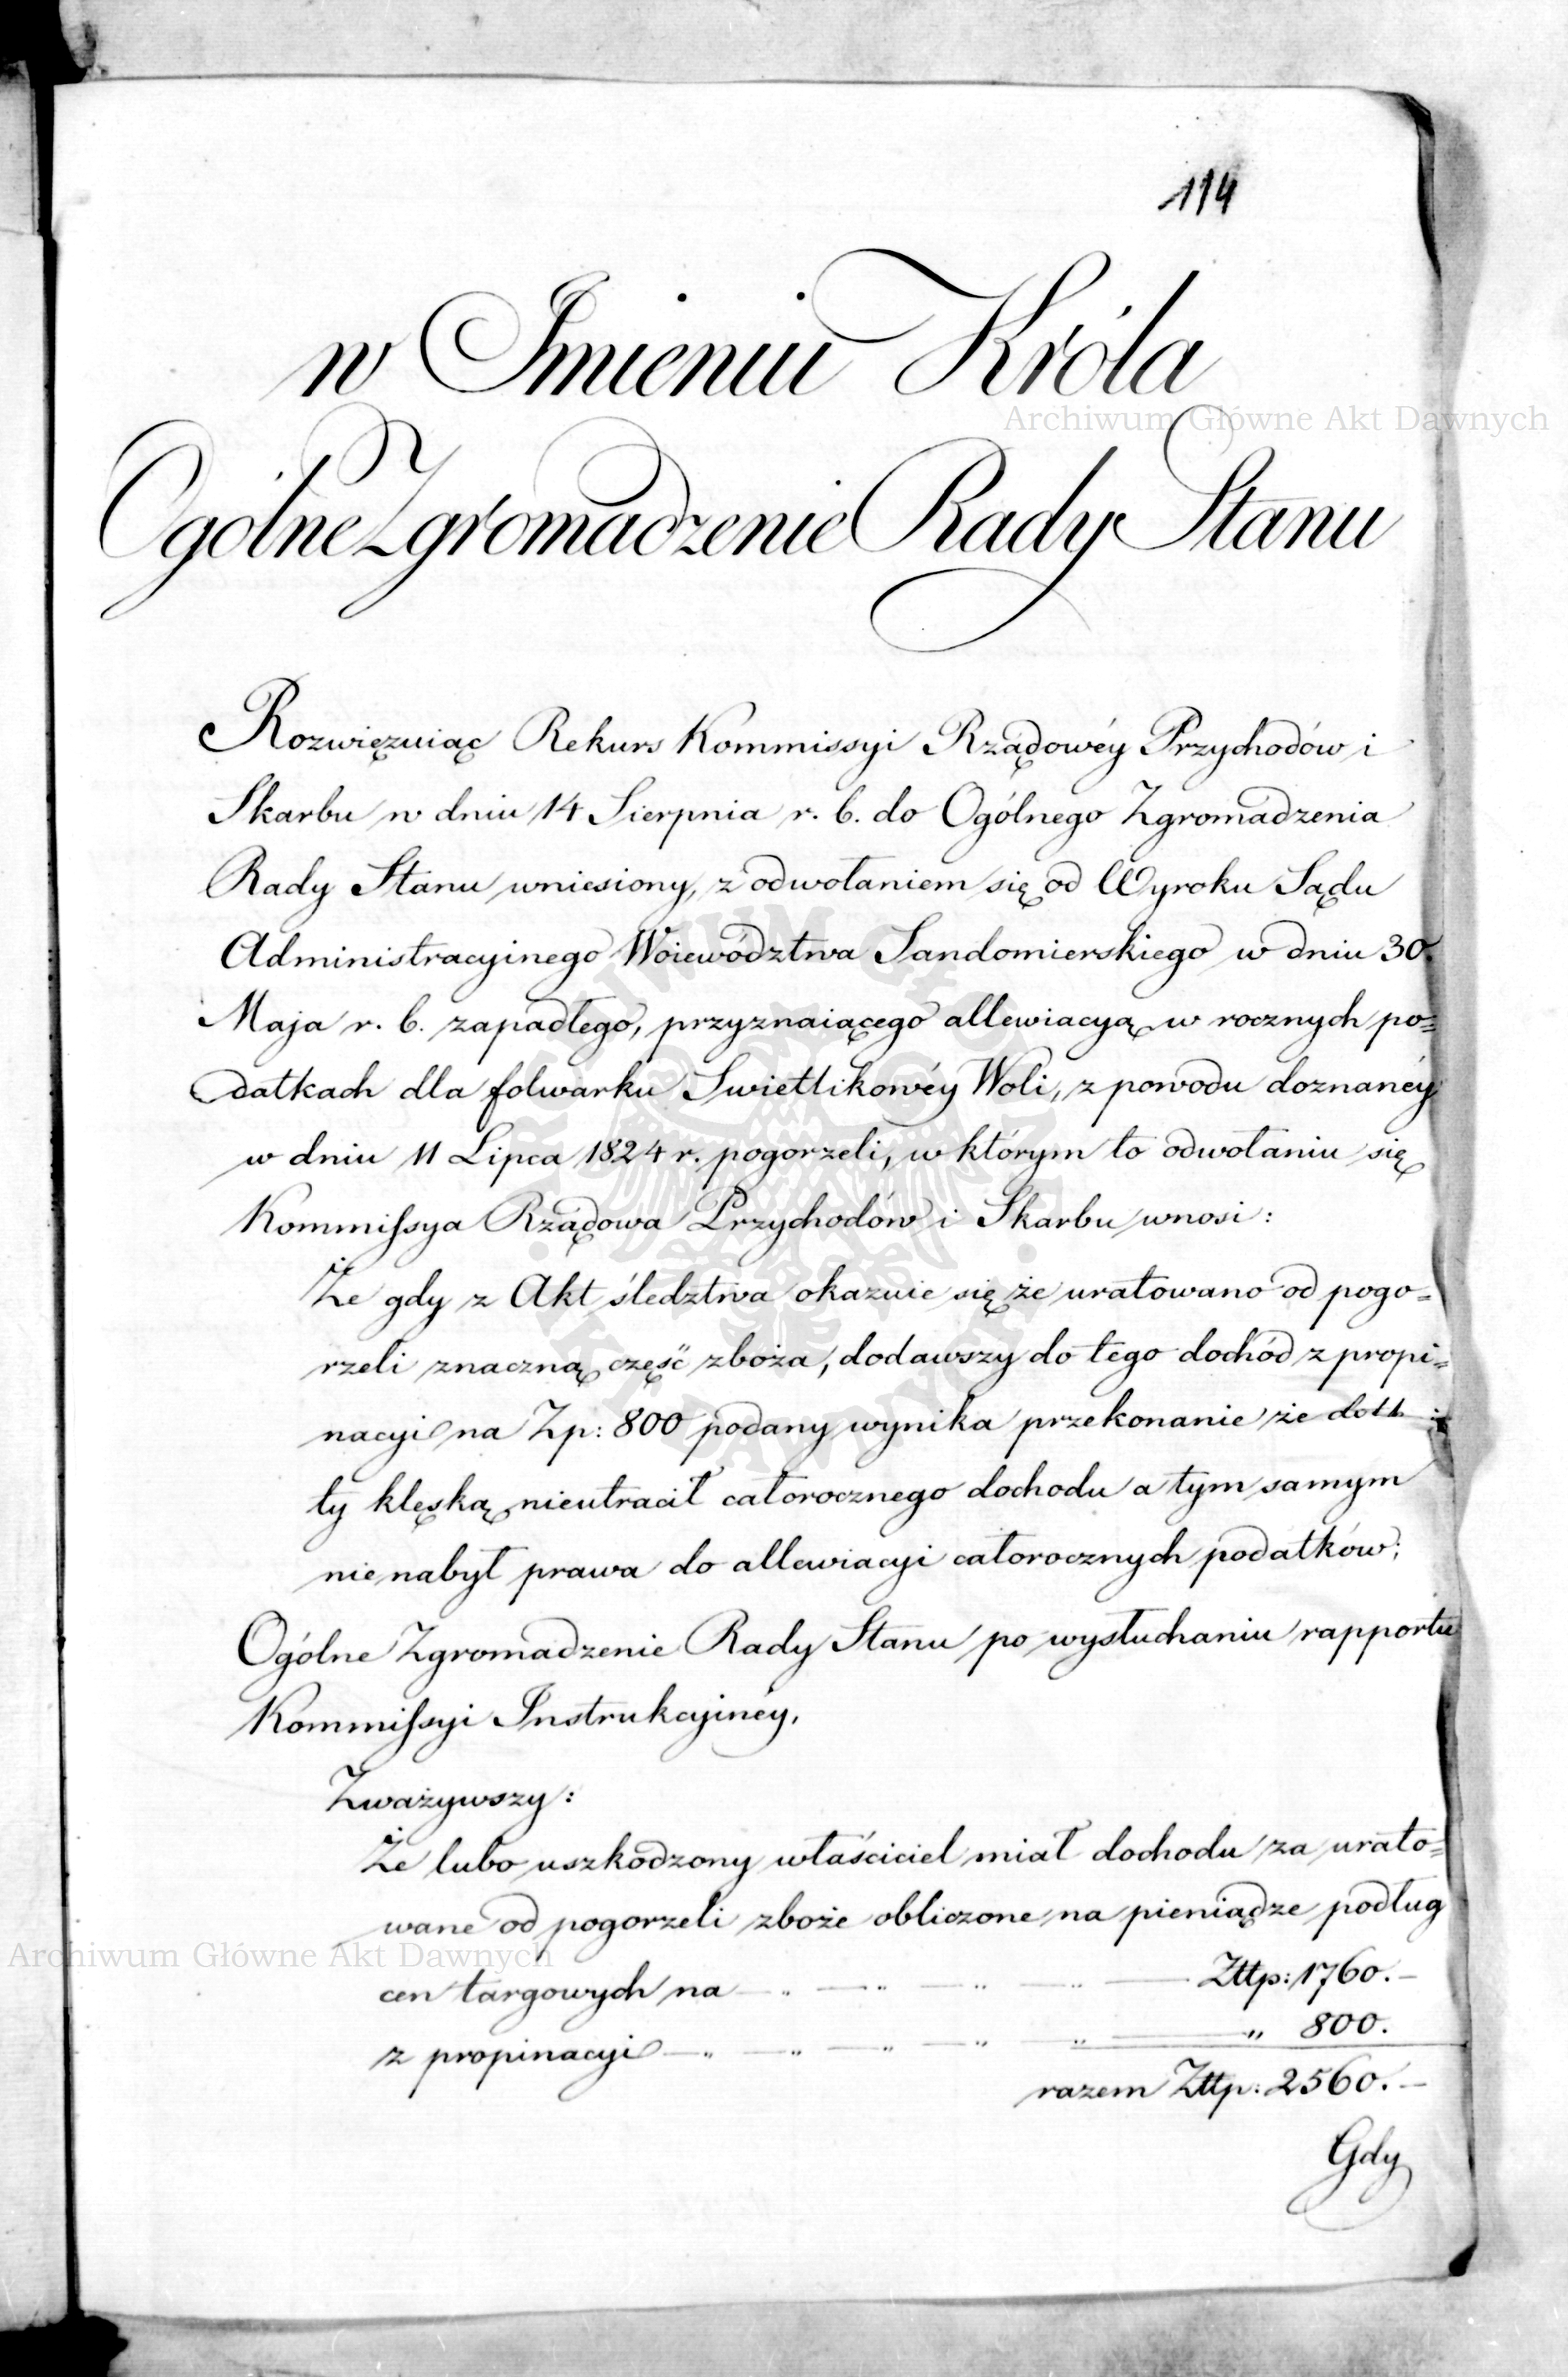 114
w Imieniu Króla
Ogólne Zgromadzenie Rady Stanu
Rozwięzuiąc Rekurs Kommissyi Rządowéy Przychodów i
Skarbu w dniu 14 Sierpnia r. b. do Ogólnego Zgromadzenia
Rady Stanu wniesiony, z odwołaniem się od Wyroku Sądu
Administracyinego Woiewództwa Sandomierskiego w dniu 30.
Maja r. b. zapadłego, przyznaiącego allewiacyą w rocznych po=
datkach dla folwarku Swietlikowéy Woli, z powodu doznanéy
w dniu 11 Lipca 1824 r. pogorzeli, w którym to odwołaniu się
Kommifsya Rządowa Przychodów i Skarbu wnosi:
Że gdy z Akt śledztwa okazuie się że uratowano od pogo=
rzeli znaczną część zboża, dodawszy do tego dochód z propi=
nacyi na Zp: 800 podany wynika przekonanie że
ty klęską nieutracił całorocznego dochodu a tym samym
nie nabył prawa do allewiacyi całorocznych podatków;
Ogólne Zgromadzenie Rady Stanu po wysłuchaniu rapportu
Kommifsyi Instrukcyinéy,
Zważywszy:
Że lubo uszkodzony właściciel miał dochodu za urato=
wane od pogorzeli zboże obliczone na pieniądze podług
cen targowych na — „ — „ — „ — „ — Złtp: 1760. —
z propinacyi — „ — „ — „ — „ „ — „ 800.
razem Złtp: 2560. —
Gdy
Archiwum Główne Akt Dawnych
Archiwum Główne Akt Dawnych
ARCHIWUM GŁÓWNE AKT DAWNYCH